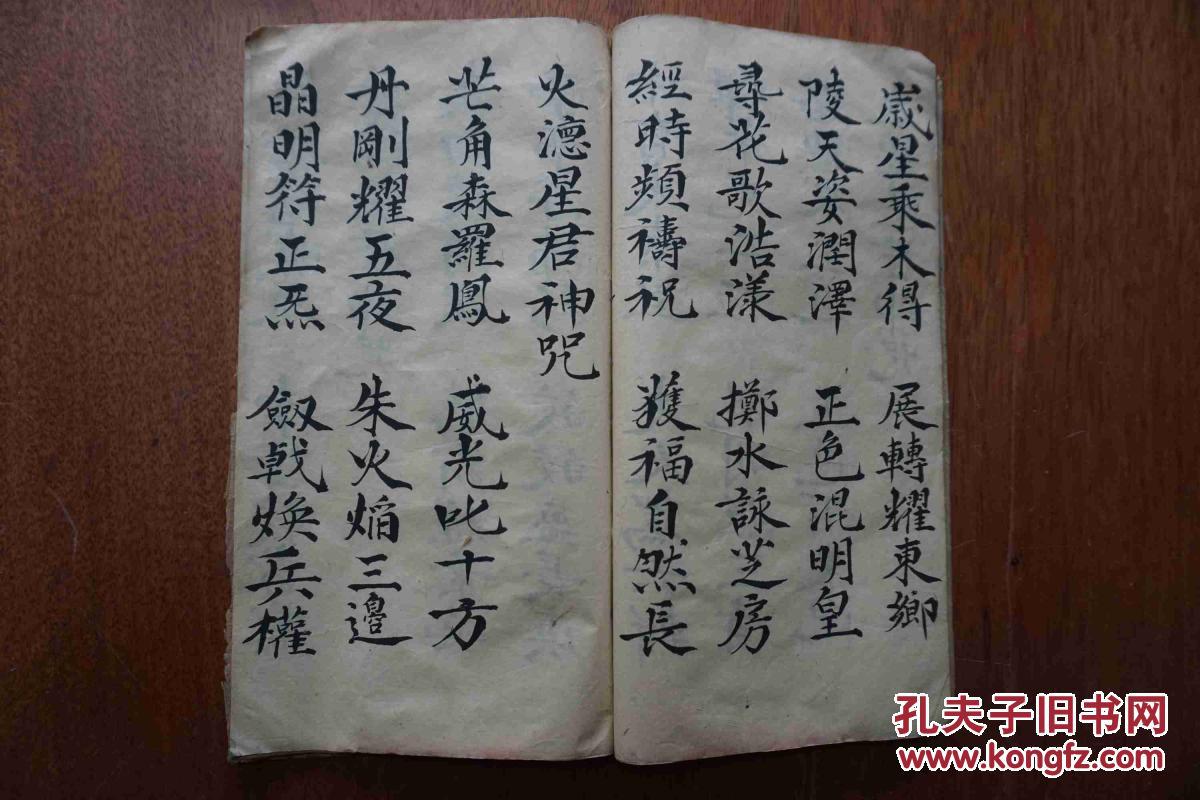 歲星乘木得 展轉耀東鄉
陵天姿潤澤 正色混明皇
尋花歌浩漾 擲水詠芝房
經時頻禱祝 獲福自然長
火德星君神咒
芒角森羅鳳 威光叱十方
丹剛耀五夜 朱火焰三邊
晶明符正炁 劔戟煥兵權
孔夫子旧书网
www.kongfz.com